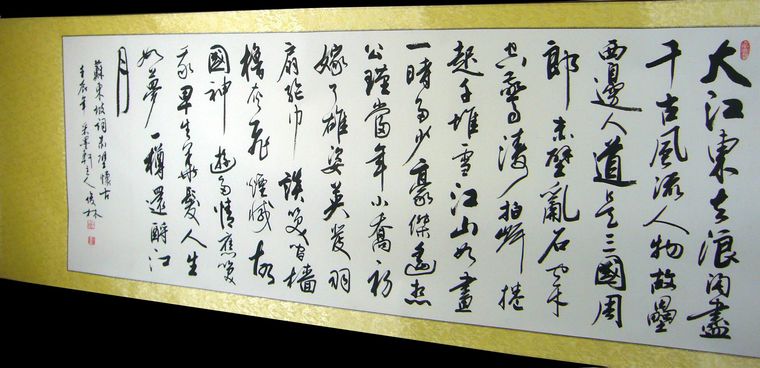 大江東去浪淘盡
千古風流人物故壘
西邊人道是三國周
郎赤壁亂石穿
空驚濤拍岸捲
起千堆雪江山如畫
一時多少豪傑遙想
公瑾當年小喬初
嫁了雄姿英發羽
扇綸巾談笑間檣
櫓灰飛煙滅故
國神遊多情應笑
我早生華髮人生
如夢一樽還酹江
月
蘇東坡詞赤壁懷古
壬辰年墨軒主人俊林